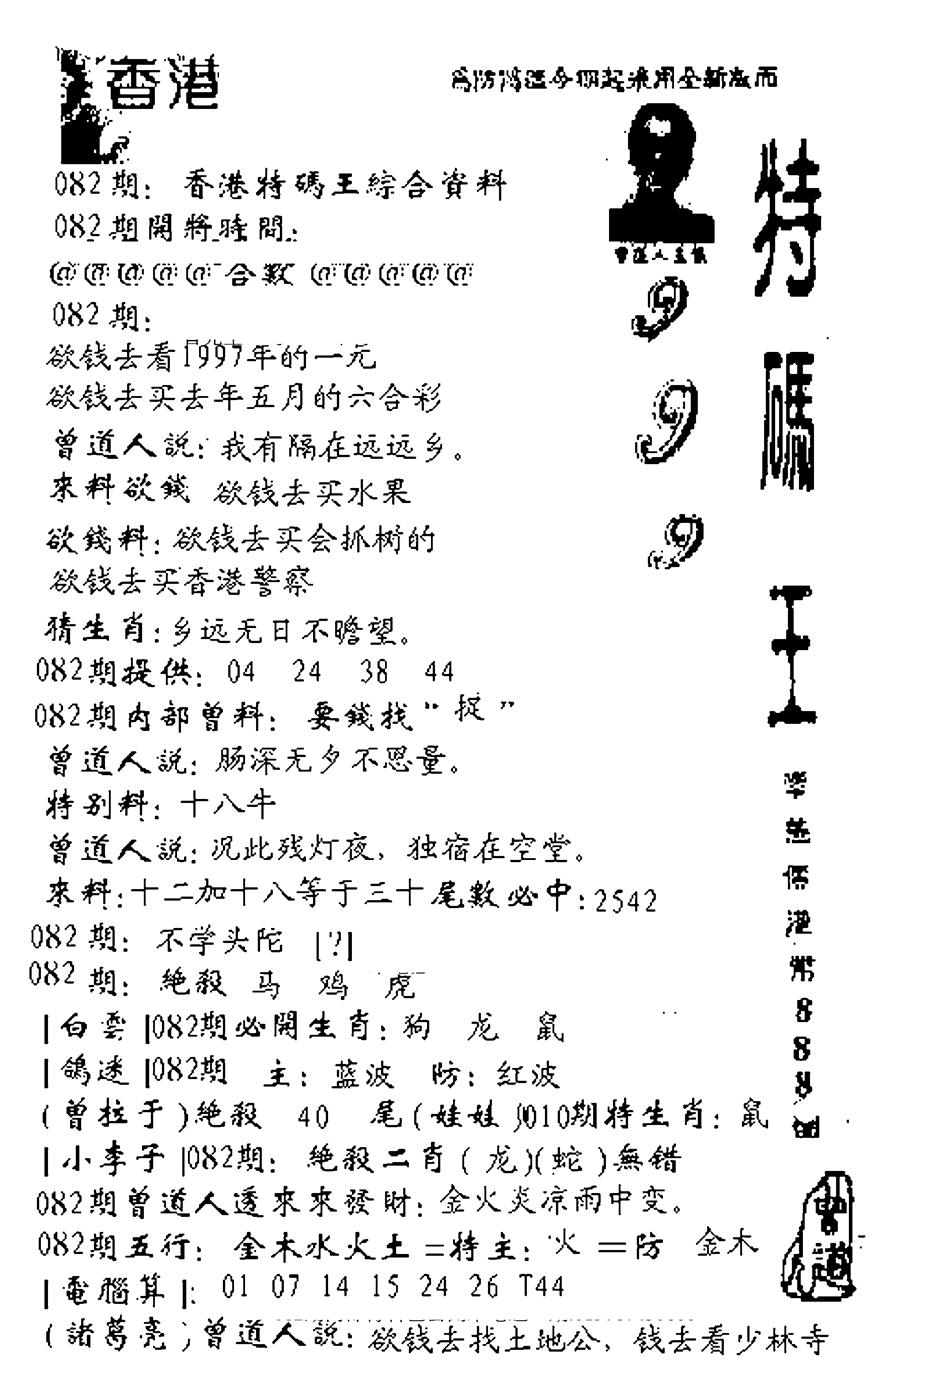 香港
為防偽造今期起採用全新版面
082期：香港特碼王綜合資料
082期開將時間：
@@@@@合數@@@@@
082期：
欲钱去看1997年的一元
欲钱去买去年五月的六合彩
曾道人説：我有隔在远远乡。
來料欲錢 欲钱去买水果
欲錢料：欲钱去买会抓树的
欲钱去买香港警察
猜生肖：乡远无日不瞻望。
082期提供：04 24 38 44
082期内部曾料：要錢找“捉”
曾道人説：肠深无夕不思量。
特别料：十八牛
曾道人説：况此残灯夜，独宿在空堂。
來料：十二加十八等于三十尾數必中：2542
082期：不学头陀 [?]
082期：絶殺 马 鸡 虎
|白雲|082期必開生肖：狗 龙 鼠
|鴿迷|082期 主：蓝波 防：红波
(曾拉于)絶殺 40 尾(娃娃)010期特生肖：鼠
|小李子|082期：絶殺二肖(龙)(蛇)無错
082期曾道人透來來發財：金火炎凉雨中变。
082期五行：金木水火土=特主：火=防 金木
|電腦算|：01 07 14 15 24 26 T44
(諸葛亮)曾道人説：欲钱去找土地公，钱去看少林寺
曾道人主儀
9
9
9
特碼王
港幣888
曾道